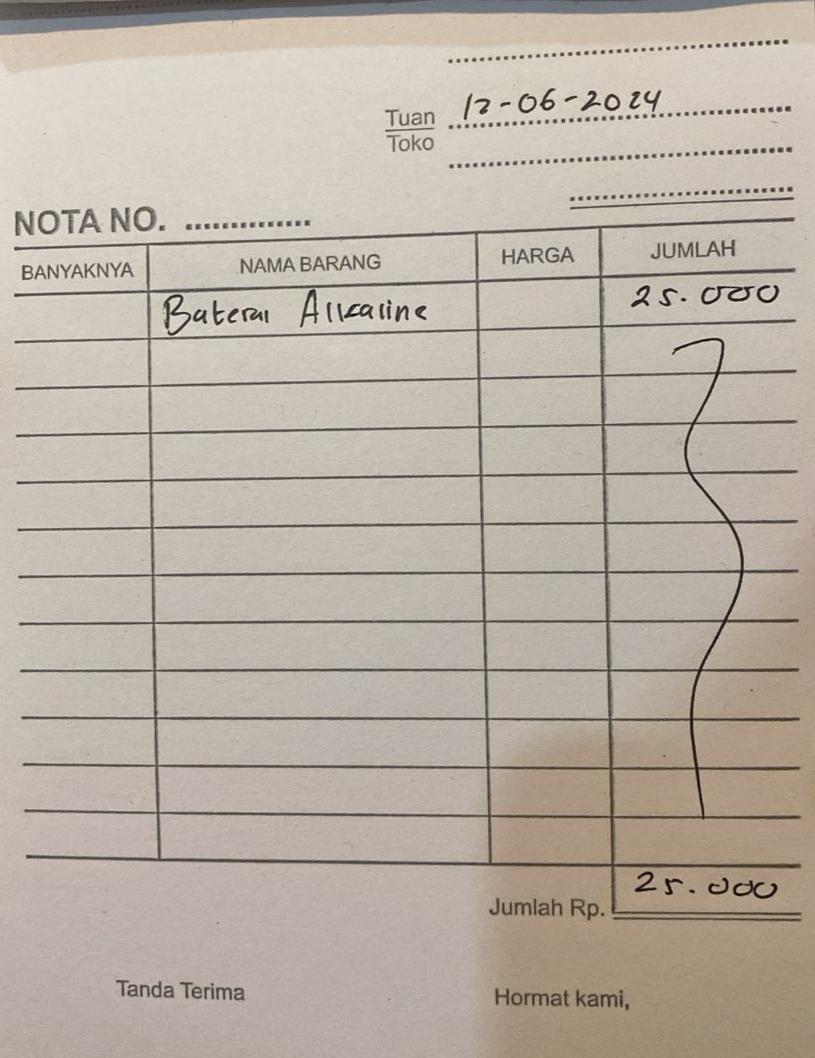 Tuan 12-06-2024
Toko
NOTA NO. ..............
BANYAKNYA NAMA BARANG HARGA JUMLAH
Baterai Alkaline 25.000
Jumlah Rp. 25.000
Tanda Terima Hormat kami,